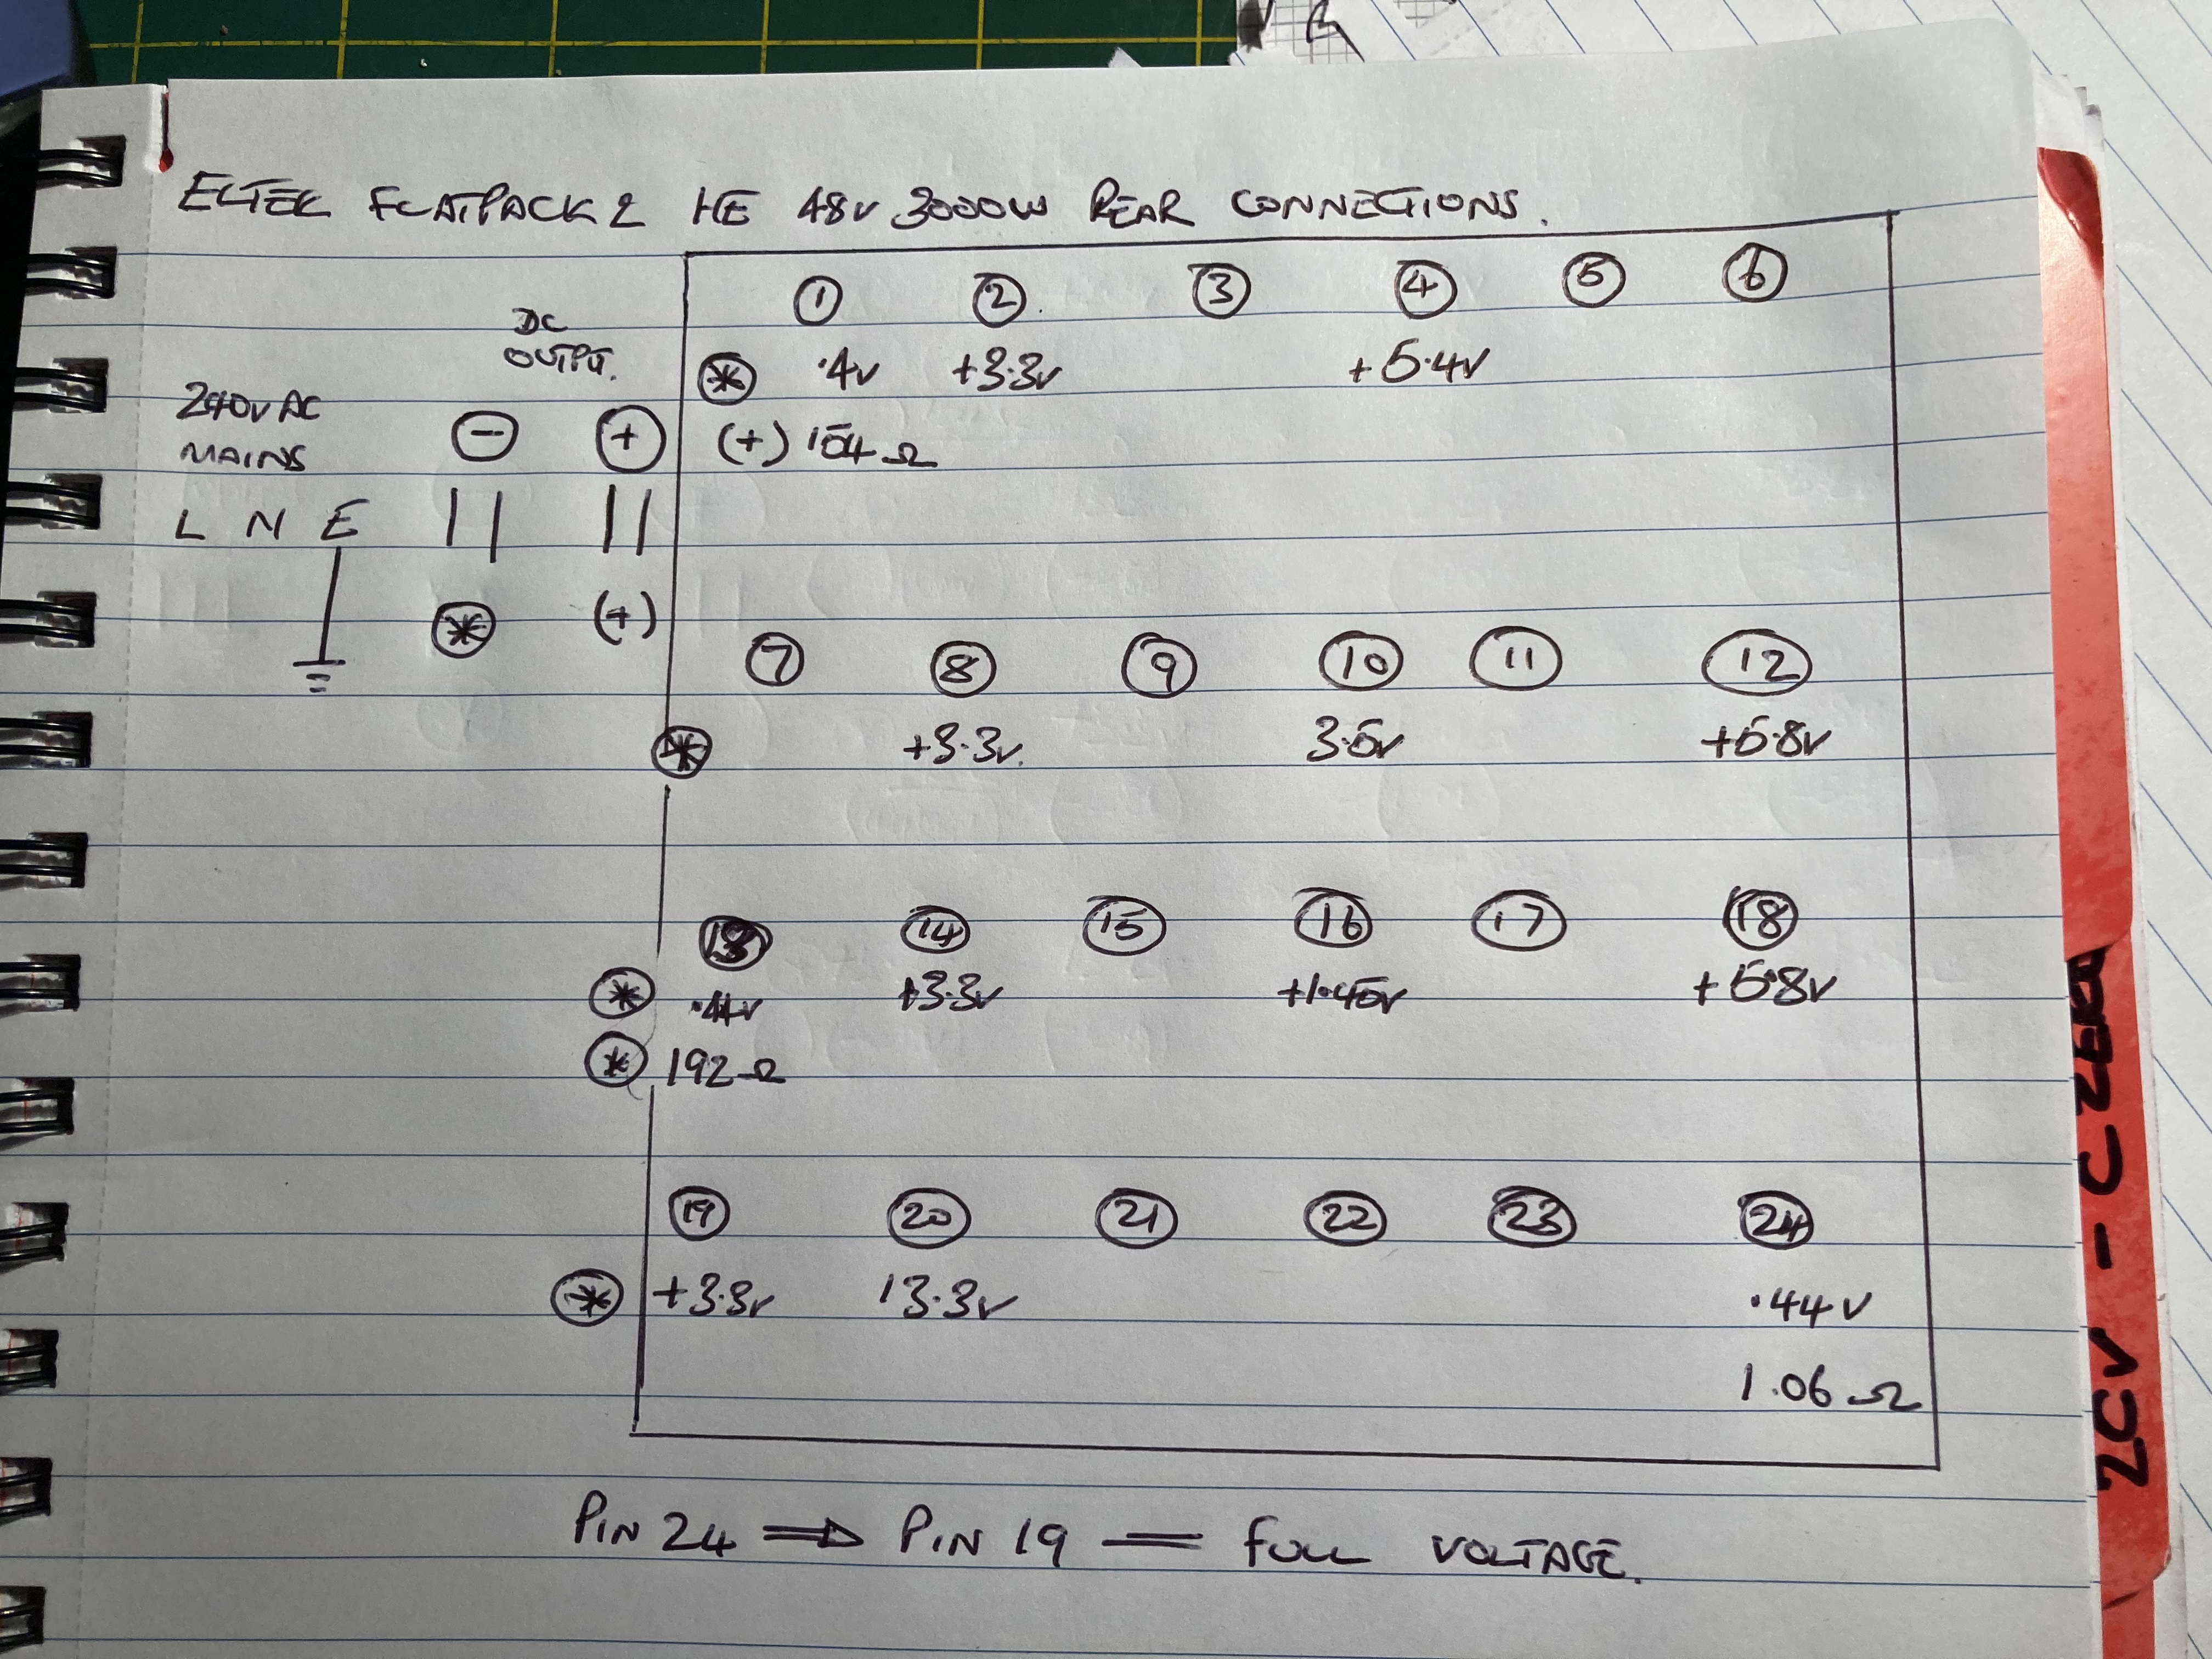 ELTEK FLATPACK 2 HE 48V 3000W REAR CONNECTIONS.
DC
OUTPUT.
240V AC
MAINS
- +
L N E
* (+)
1 2 3 4 5 6
* .4V +3.3V +5.4V
(+) 154Ω
7 8 9 10 11 12
* +3.3V. 3.5V +5.8V
13 14 15 16 17 18
* .44V +3.3V +1.45V +5.8V
* 192Ω
19 20 21 22 23 24
* +3.3V 13.3V .44V
1.06Ω
PIN 24 ⇒ PIN 19 = FULL VOLTAGE.
2CV - C ZERO